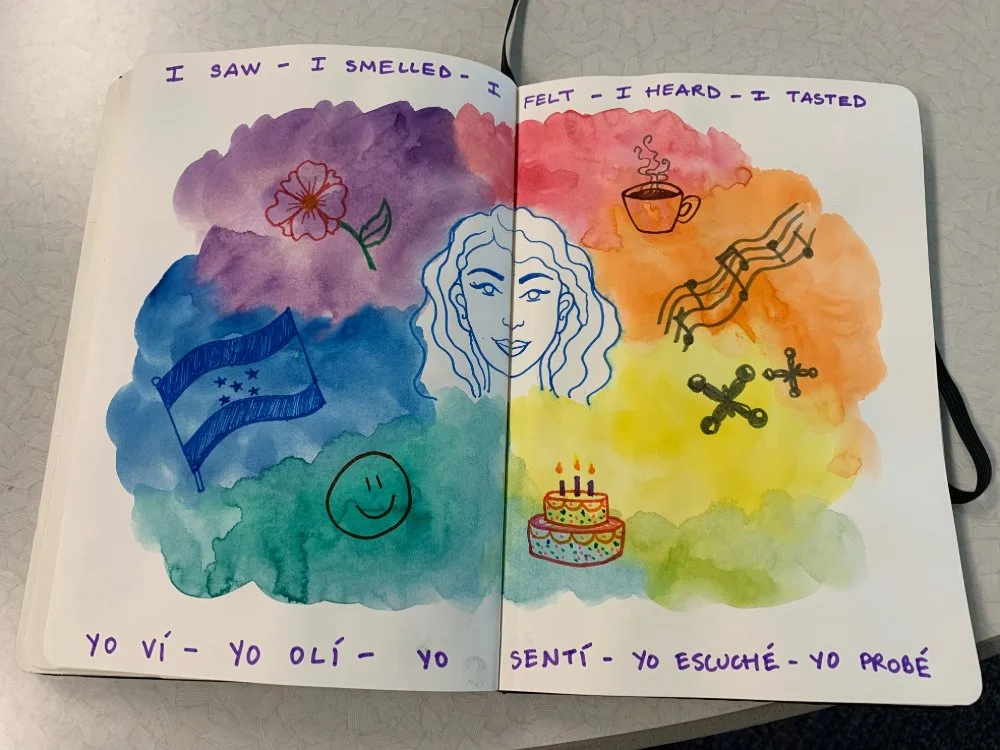 I SAW - I SMELLED - I FELT - I HEARD - I TASTED
YO VÍ - YO OLÍ - YO SENTÍ - YO ESCUCHÉ - YO PROBÉ